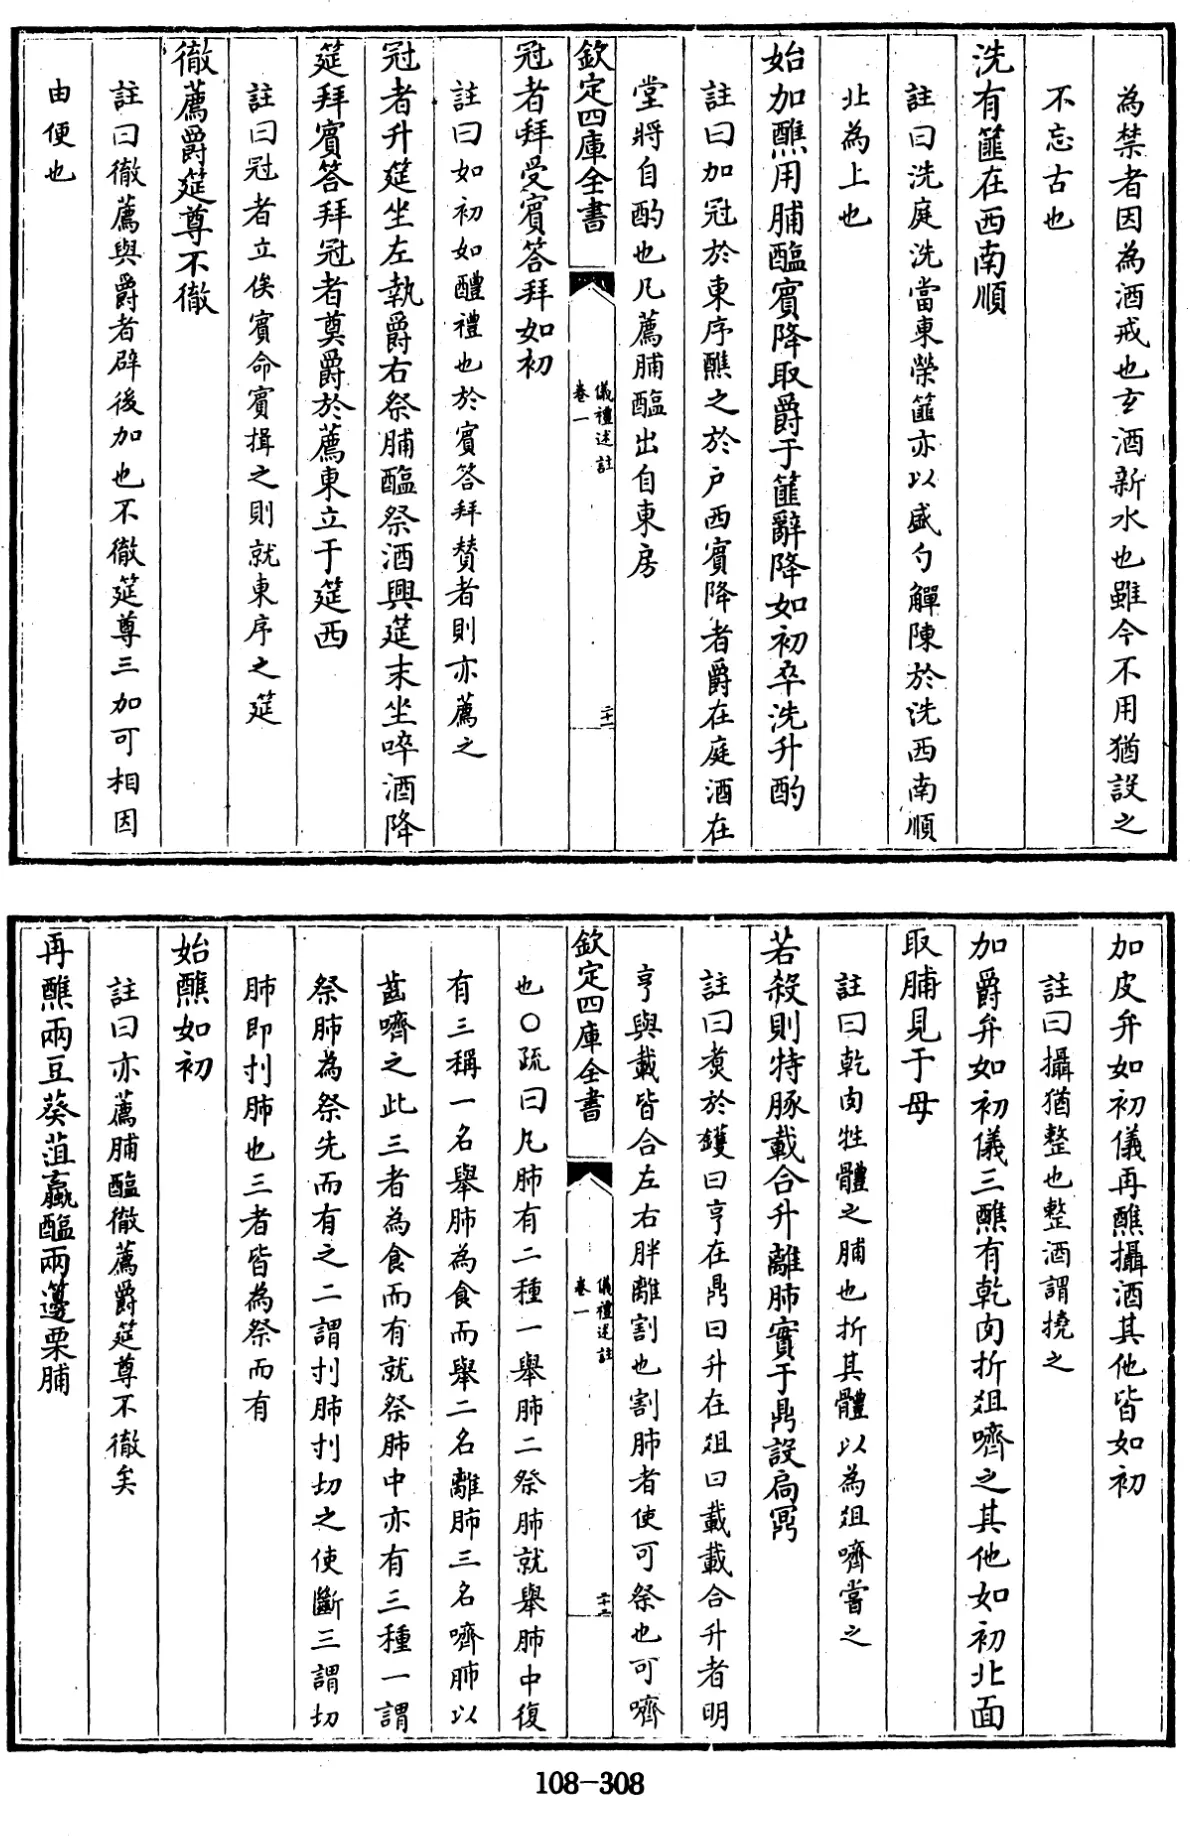 為禁者因為酒戒也玄酒新水也雖今不用猶設之
不忘古也
洗有篚在西南順
註曰洗庭洗當東榮篚亦以盛勺觶陳於洗西南順
北為上也
始加醮用脯醢賓降取爵于篚辭降如初卒洗升酌
註曰加冠於東序醮之於戶西賓降者爵在庭酒在
堂將自酌也凡薦脯醢出自東房
欽定四庫全書
儀禮述註
卷一
二十一
冠者拜受賓答拜如初
註曰如初如醴禮也於賓答拜贊者則亦薦之
冠者升筵坐左執爵右祭脯醢祭酒興筵末坐啐酒降
筵拜賓答拜冠者奠爵於薦東立于筵西
註曰冠者立俟賓命賓揖之則就東序之筵
徹薦爵筵尊不徹
註曰徹薦與爵者辟後加也不徹筵尊三加可相因
由便也
加皮弁如初儀再醮攝酒其他皆如初
註曰攝猶整也整酒謂撓之
加爵弁如初儀三醮有乾肉折俎嚌之其他如初北面
取脯見于母
註曰乾肉牲體之脯也折其體以為俎嚌嘗之
若殺則特豚載合升離肺實于鼎設扃鼏
註曰煑於鑊曰亨在鼎曰升在俎曰載載合升者明
亨與載皆合左右胖離割也割肺者使可祭也可嚌
欽定四庫全書
儀禮述註
卷一
二十二
也○疏曰凡肺有二種一舉肺二祭肺就舉肺中復
有三稱一名舉肺為食而舉二名離肺三名嚌肺以
齒嚌之此三者為食而有就祭肺中亦有三種一謂
祭肺為祭先而有之二謂刌肺刌切之使斷三謂切
肺即刌肺也三者皆為祭而有
始醮如初
註曰亦薦脯醢徹薦爵筵尊不徹矣
再醮兩豆葵菹蠃醢兩籩栗脯
108-308